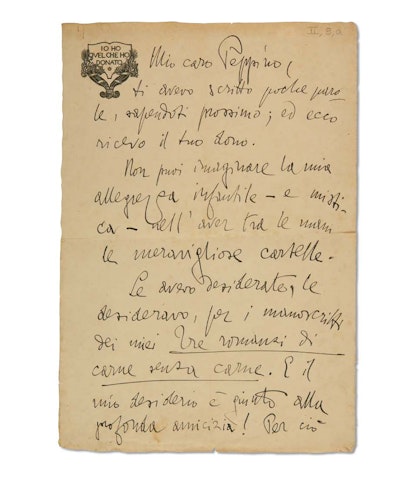 II, 3, a
IO HO
QVEL CHE HO
DONATO
Mio caro Peppino,
ti avevo scritto poche paro
le, sapendoti prossimo; ed ecco
ricevo il tuo dono.
Non puoi imaginare la mia
allegrezza infantile – e misti-
ca – nell'aver tra le mani
le meravigliose cartelle.
Le avevo desiderate, le
desideravo, per i manoscritti
dei miei Tre romanzi di
carne senza carne. E il
mio desiderio è giunto alla
profonda amicizia! Per ciò